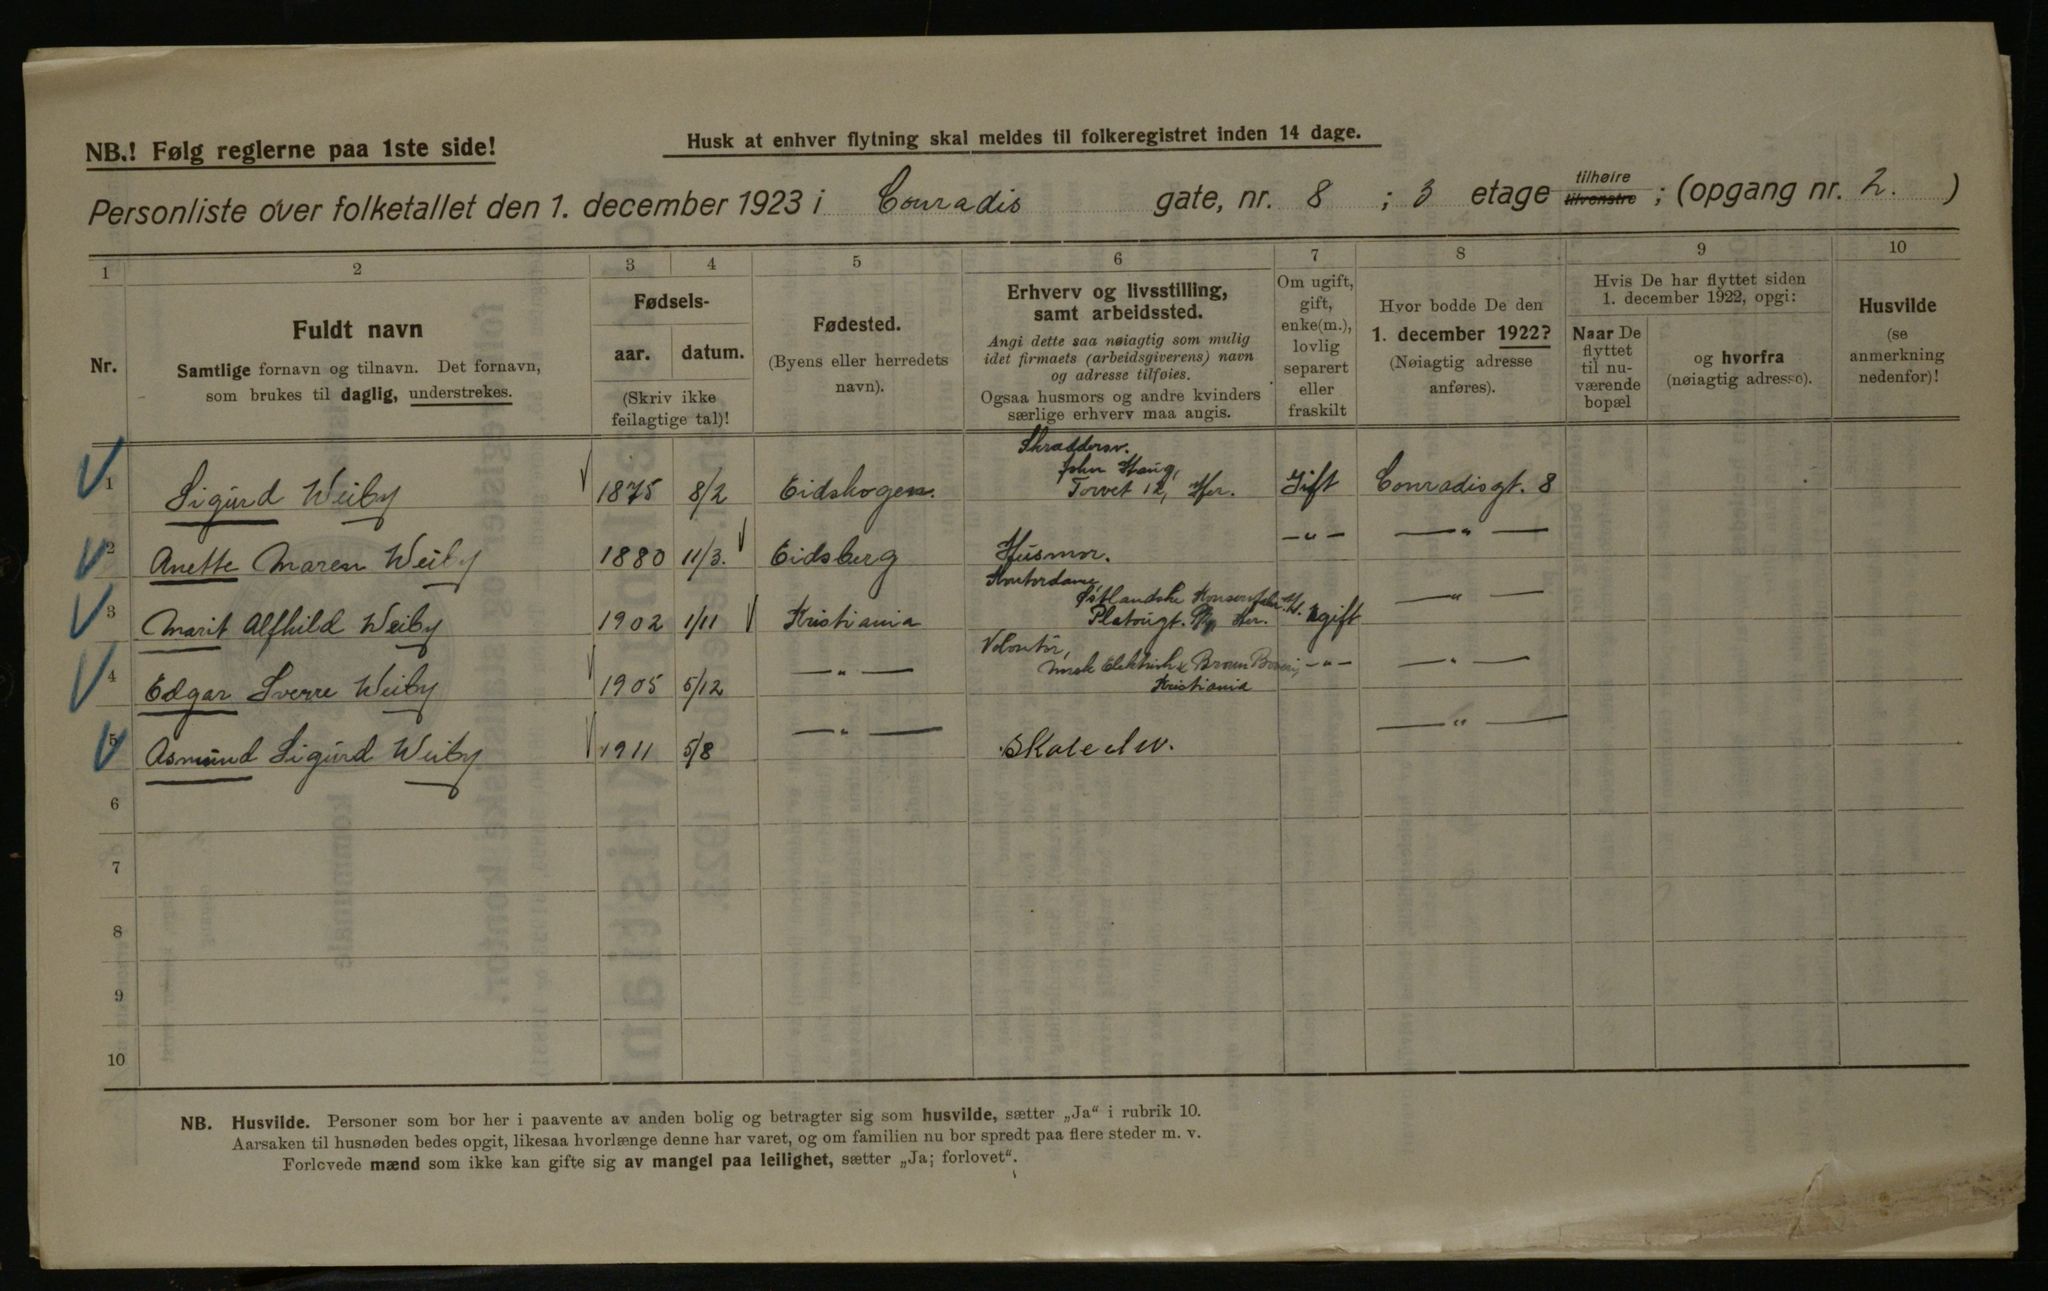 NB.! Følg reglerne paa 1ste side!
Husk at enhver flytning skal meldes til folkeregistret inden 14 dage.
Personliste over folketallet den 1. december 1923 i Conradis gate, nr. 8 ; 3 etage tilhøire tilvenstre ; (opgang nr. 2. )
1 2 3 4 5 6 7 8 9 10
Nr.
Fuldt navn
Samtlige fornavn og tilnavn. Det fornavn,
som brukes til daglig, understrekes.
Fødsels-
aar. datum.
(Skriv ikke
feilagtige tal)!
Fødested.
(Byens eller herredets
navn).
Erhverv og livsstilling,
samt arbeidssted.
Angi dette saa nøiagtig som mulig
idet firmaets (arbeidsgiverens) navn
og adresse tilføies.
Ogsaa husmors og andre kvinders
særlige erhverv maa angis.
Om ugift,
gift,
enke(m.),
lovlig
separert
eller
fraskilt
Hvor bodde De den
1. december 1922?
(Nøiagtig adresse
anføres).
Hvis De har flyttet siden
1. december 1922, opgi:
Naar De
flyttet
til nu-
værende
bopæl
og hvorfra
(nøiagtig adresse).
Husvilde
(se
anmerkning
nedenfor)!
Skræddersv.
John Haug,
1 Sigurd Weiby 1875 8/2 Eidskogen. Torvet 12, Her. Gift Conradisgt. 8
2 Anette Maren Weiby 1880 11/3. Eidsberg Husmor. —„— —„—
Kontordame,
Østlandske
3 Marit Alfhild Weiby 1902 1/11 Kristiania Platougt. Her. ugift —„—
Volontør,
4 Edgar Sverre Weiby 1905 5/12 —„— Norsk Elektrisk & Brown Boveri, —„— —„—
Kristiania
5 Asmund Sigurd Weiby 1911 5/8 —„— Skoleelev. —„—
6
7
8
9
10
NB. Husvilde. Personer som bor her i paavente av anden bolig og betragter sig som husvilde, sætter „Ja“ i rubrik 10.
Aarsaken til husnøden bedes opgit, likesaa hvorlænge denne har varet, og om familien nu bor spredt paa flere steder m. v.
Forlovede mænd som ikke kan gifte sig av mangel paa leilighet, sætter „Ja; forlovet“.